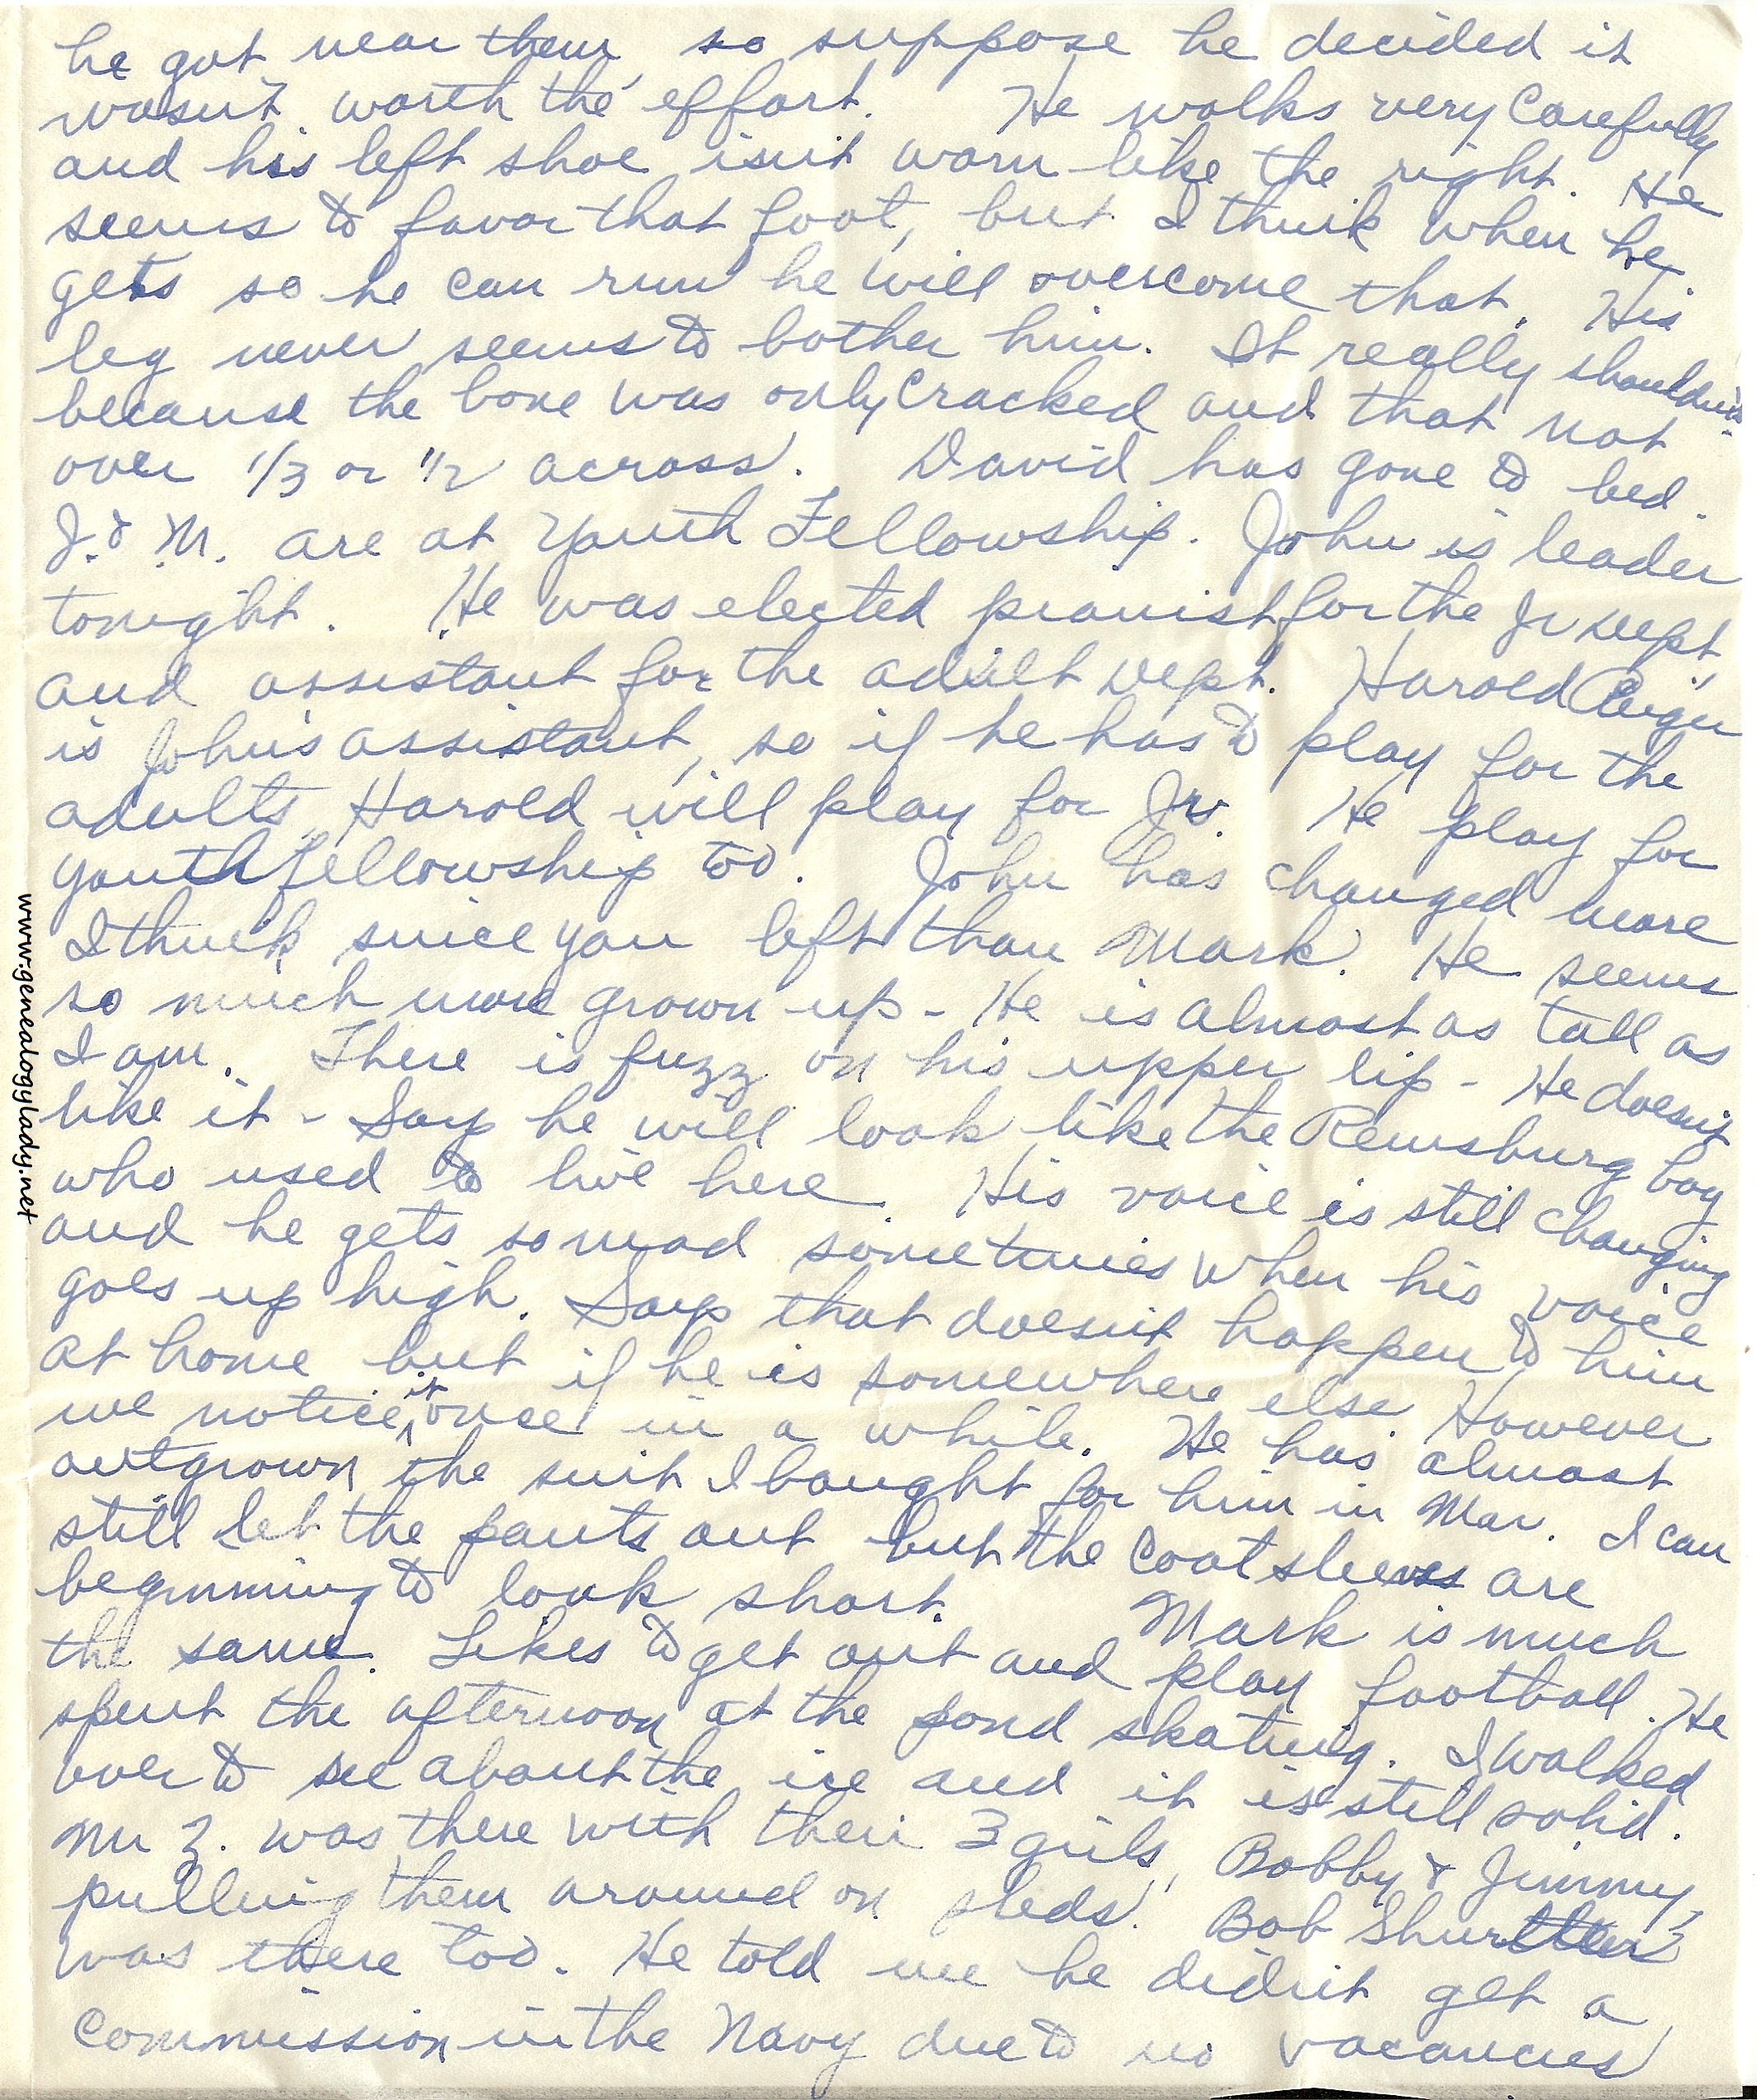 he got near them, so suppose he decided it
wasn't worth the effort. He walks very carefully
and his left shoe isn't worn like the right. He
seems to favor that foot, but I think when he
gets so he can run he will overcome that. His
leg never seems to bother him. It really shouldn't
because the bone was only cracked and that not
over 1/3 or 1/2 across. David has gone to bed.
J. & M. are at Youth Fellowship. John is leader
tonight. He was elected pianist for the Jr Dept,
and assistant for the adult Dept. Harold
is John's assistant, so if he has to play for the
adults, Harold will play for Jrs. He play for
youth fellowship too. John has changed more
I think since you left than Mark. He seems
so much more grown up - He is almost as tall as
I am. There is fuzz on his upper lip - He doesn't
like it - Says he will look like the Remsburg boy
who used to live here. His voice is still changing
and he gets so mad sometimes when his voice
goes up high. Says that doesn't happen to him
at home but if he is somewhere else However
we notice it once in a while. He has almost
outgrown the suit I bought for him in Mar. I can
still let the pants out but the coat sleeves are
beginning to look short. Mark is much
the same. Likes to get out and play football. He
spent the afternoon at the pond skating. I walked
over to see about the ice and it is still solid.
Mr Z. was there with their 3 girls, Bobby & Jimmy,
pulling them around on sleds. Bob
was there too. He told me he didn't get a
commission in the Navy due to no vacancies
www.genealogylady.net